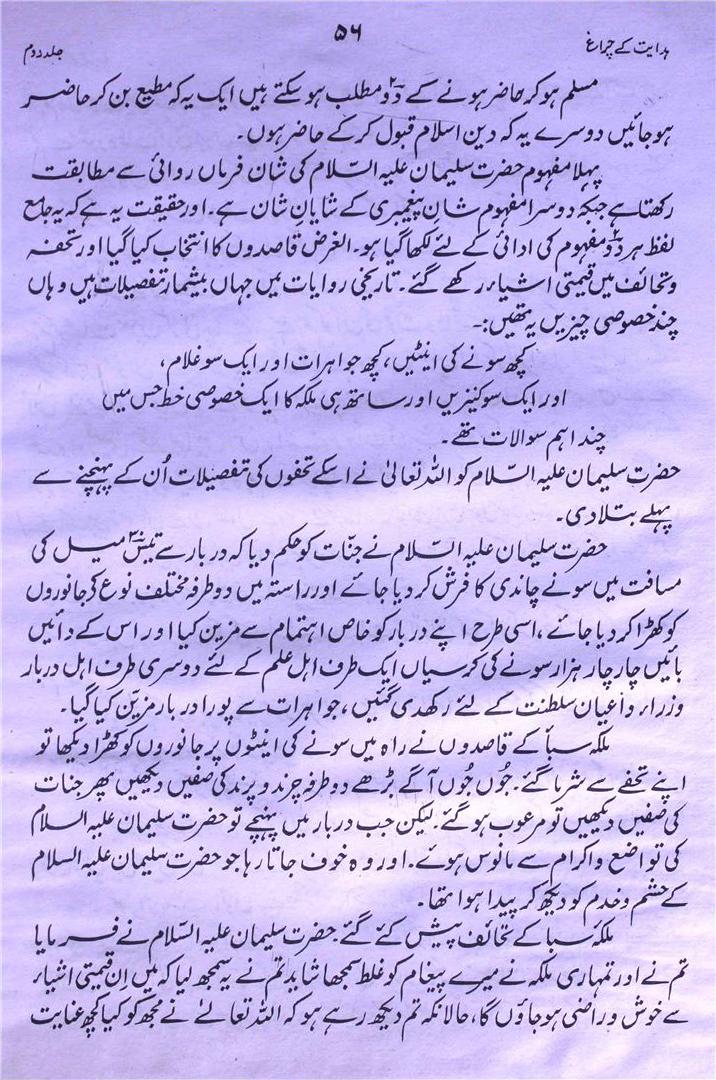 ہدایت کے چراغ
۵۶
جلد دوم
مسلم ہو کر حاضر ہونے کے دو۲ مطلب ہو سکتے ہیں ایک یہ کہ مطیع بن کر حاضر
ہو جائیں دوسرے یہ کہ دین اسلام قبول کر کے حاضر ہوں۔
پہلا مفہوم حضرت سلیمان علیہ السّلام کی شان فرماں روائی سے مطابقت
رکھتا ہے جبکہ دوسرا مفہوم شان پیغمبری کے شایانِ شان ہے۔ اور حقیقت یہ ہے کہ یہ جامع
لفظ ہر دو۲ مفہوم کی ادائی کے لئے لکھا گیا ہو۔ الغرض قاصدوں کا انتخاب کیا گیا اور تحفہ
وتحائف میں قیمتی اشیاء رکھے گئے۔ تاریخی روایات میں جہاں بیشمار تفصیلات ہیں وہاں
چند خصوصی چیزیں یہ تھیں:۔
کچھ سونے کی اینٹیں، کچھ جواہرات اور ایک سو غلام،
اور ایک سو کنیزیں اور ساتھ ہی ملکہ کا ایک خصوصی خط جس میں
چند اہم سوالات تھے۔
حضرت سلیمان علیہ السّلام کو اللہ تعالیٰ نے اسکے تحفوں کی تفصیلات اُن کے پہنچنے سے
پہلے بتلا دی۔
حضرت سلیمان علیہ السّلام نے جنّات کو حکم دیا کہ دربار سے تیس۳۰ میل کی
مسافت میں سونے چاندی کا فرش کر دیا جائے اور راستہ میں دو طرفہ مختلف نوع کے جانوروں
کو کھڑا کر دیا جائے، اسی طرح اپنے دربار کو خاص اہتمام سے مزین کیا اور اس کے دائیں
بائیں چار چار ہزار سونے کی کرسیاں ایک طرف اہل علم کے لئے دوسری طرف اہل دربار
وزراء و اعیان سلطنت کے لئے رکھدی گئیں، جواہرات سے پورا دربار مزیّن کیا گیا۔
ملکہ سبأ کے قاصدوں نے راہ میں سونے کی اینٹوں پر جانوروں کو کھڑا دیکھا تو
اپنے تحفے سے شرما گئے۔ جُوں جُوں آگے بڑھے دو طرفہ چرند و پرند کی صفیں دیکھیں پھر جنات
کی صفیں دیکھیں تو مرعوب ہو گئے۔ لیکن جب دربار میں پہنچے تو حضرت سلیمان علیہ السلام
کی تواضع و اکرام سے مانوس ہوئے۔ اور وہ خوف جاتا رہا جو حضرت سلیمان علیہ السلام
کے حشم و خدم کو دیکھ کر پیدا ہوا تھا۔
ملکۂ سبا کے تحائف پیش کئے گئے۔ حضرت سلیمان علیہ السّلام نے فرمایا
تم نے اور تمہاری ملکہ نے میرے پیغام کو غلط سمجھا شاید تم نے یہ سمجھ لیا کہ میں اِن قیمتی اشیاء
سے خوش و راضی ہو جاؤں گا، حالانکہ تم دیکھ رہے ہو کہ اللہ تعالےٰ نے مجھ کو کیا کچھ عنایت